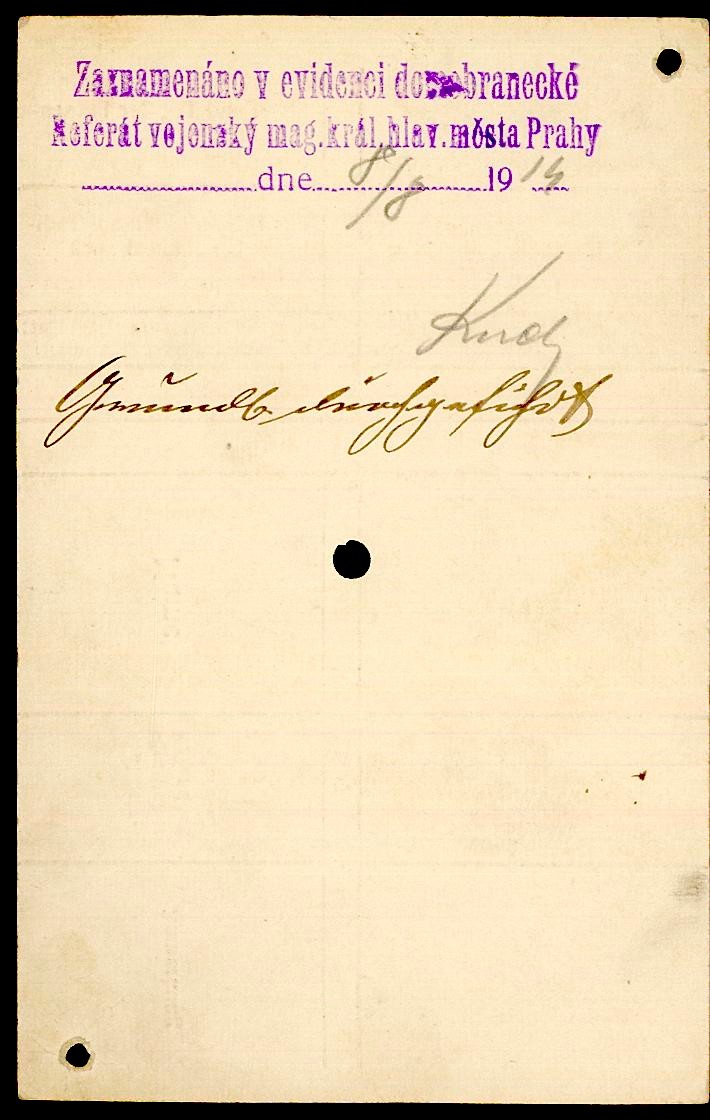 Zaznamenáno v evidenci domobranecké
Referát vojenský mag. král. hlav. města Prahy
dne 8/8 19
Grundb. durchgeführt